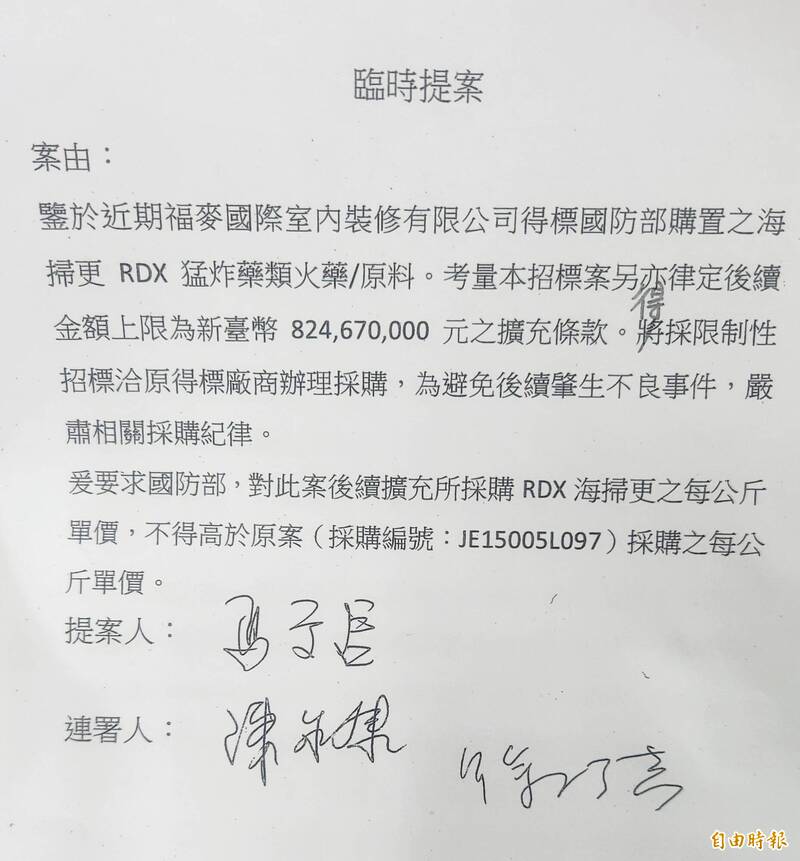 臨時提案
案由：
鑒於近期福麥國際室內裝修有限公司得標國防部購置之海
掃更 RDX 猛炸藥類火藥/原料。考量本招標案另亦律定後續
得
金額上限為新臺幣 824,670,000 元之擴充條款。將採限制性
招標洽原得標廠商辦理採購，為避免後續肇生不良事件，嚴
肅相關採購紀律。
爰要求國防部，對此案後續擴充所採購 RDX 海掃更之每公斤
單價，不得高於原案（採購編號：JE15005L097）採購之每公
斤單價。
提案人：
連署人：
自由時報